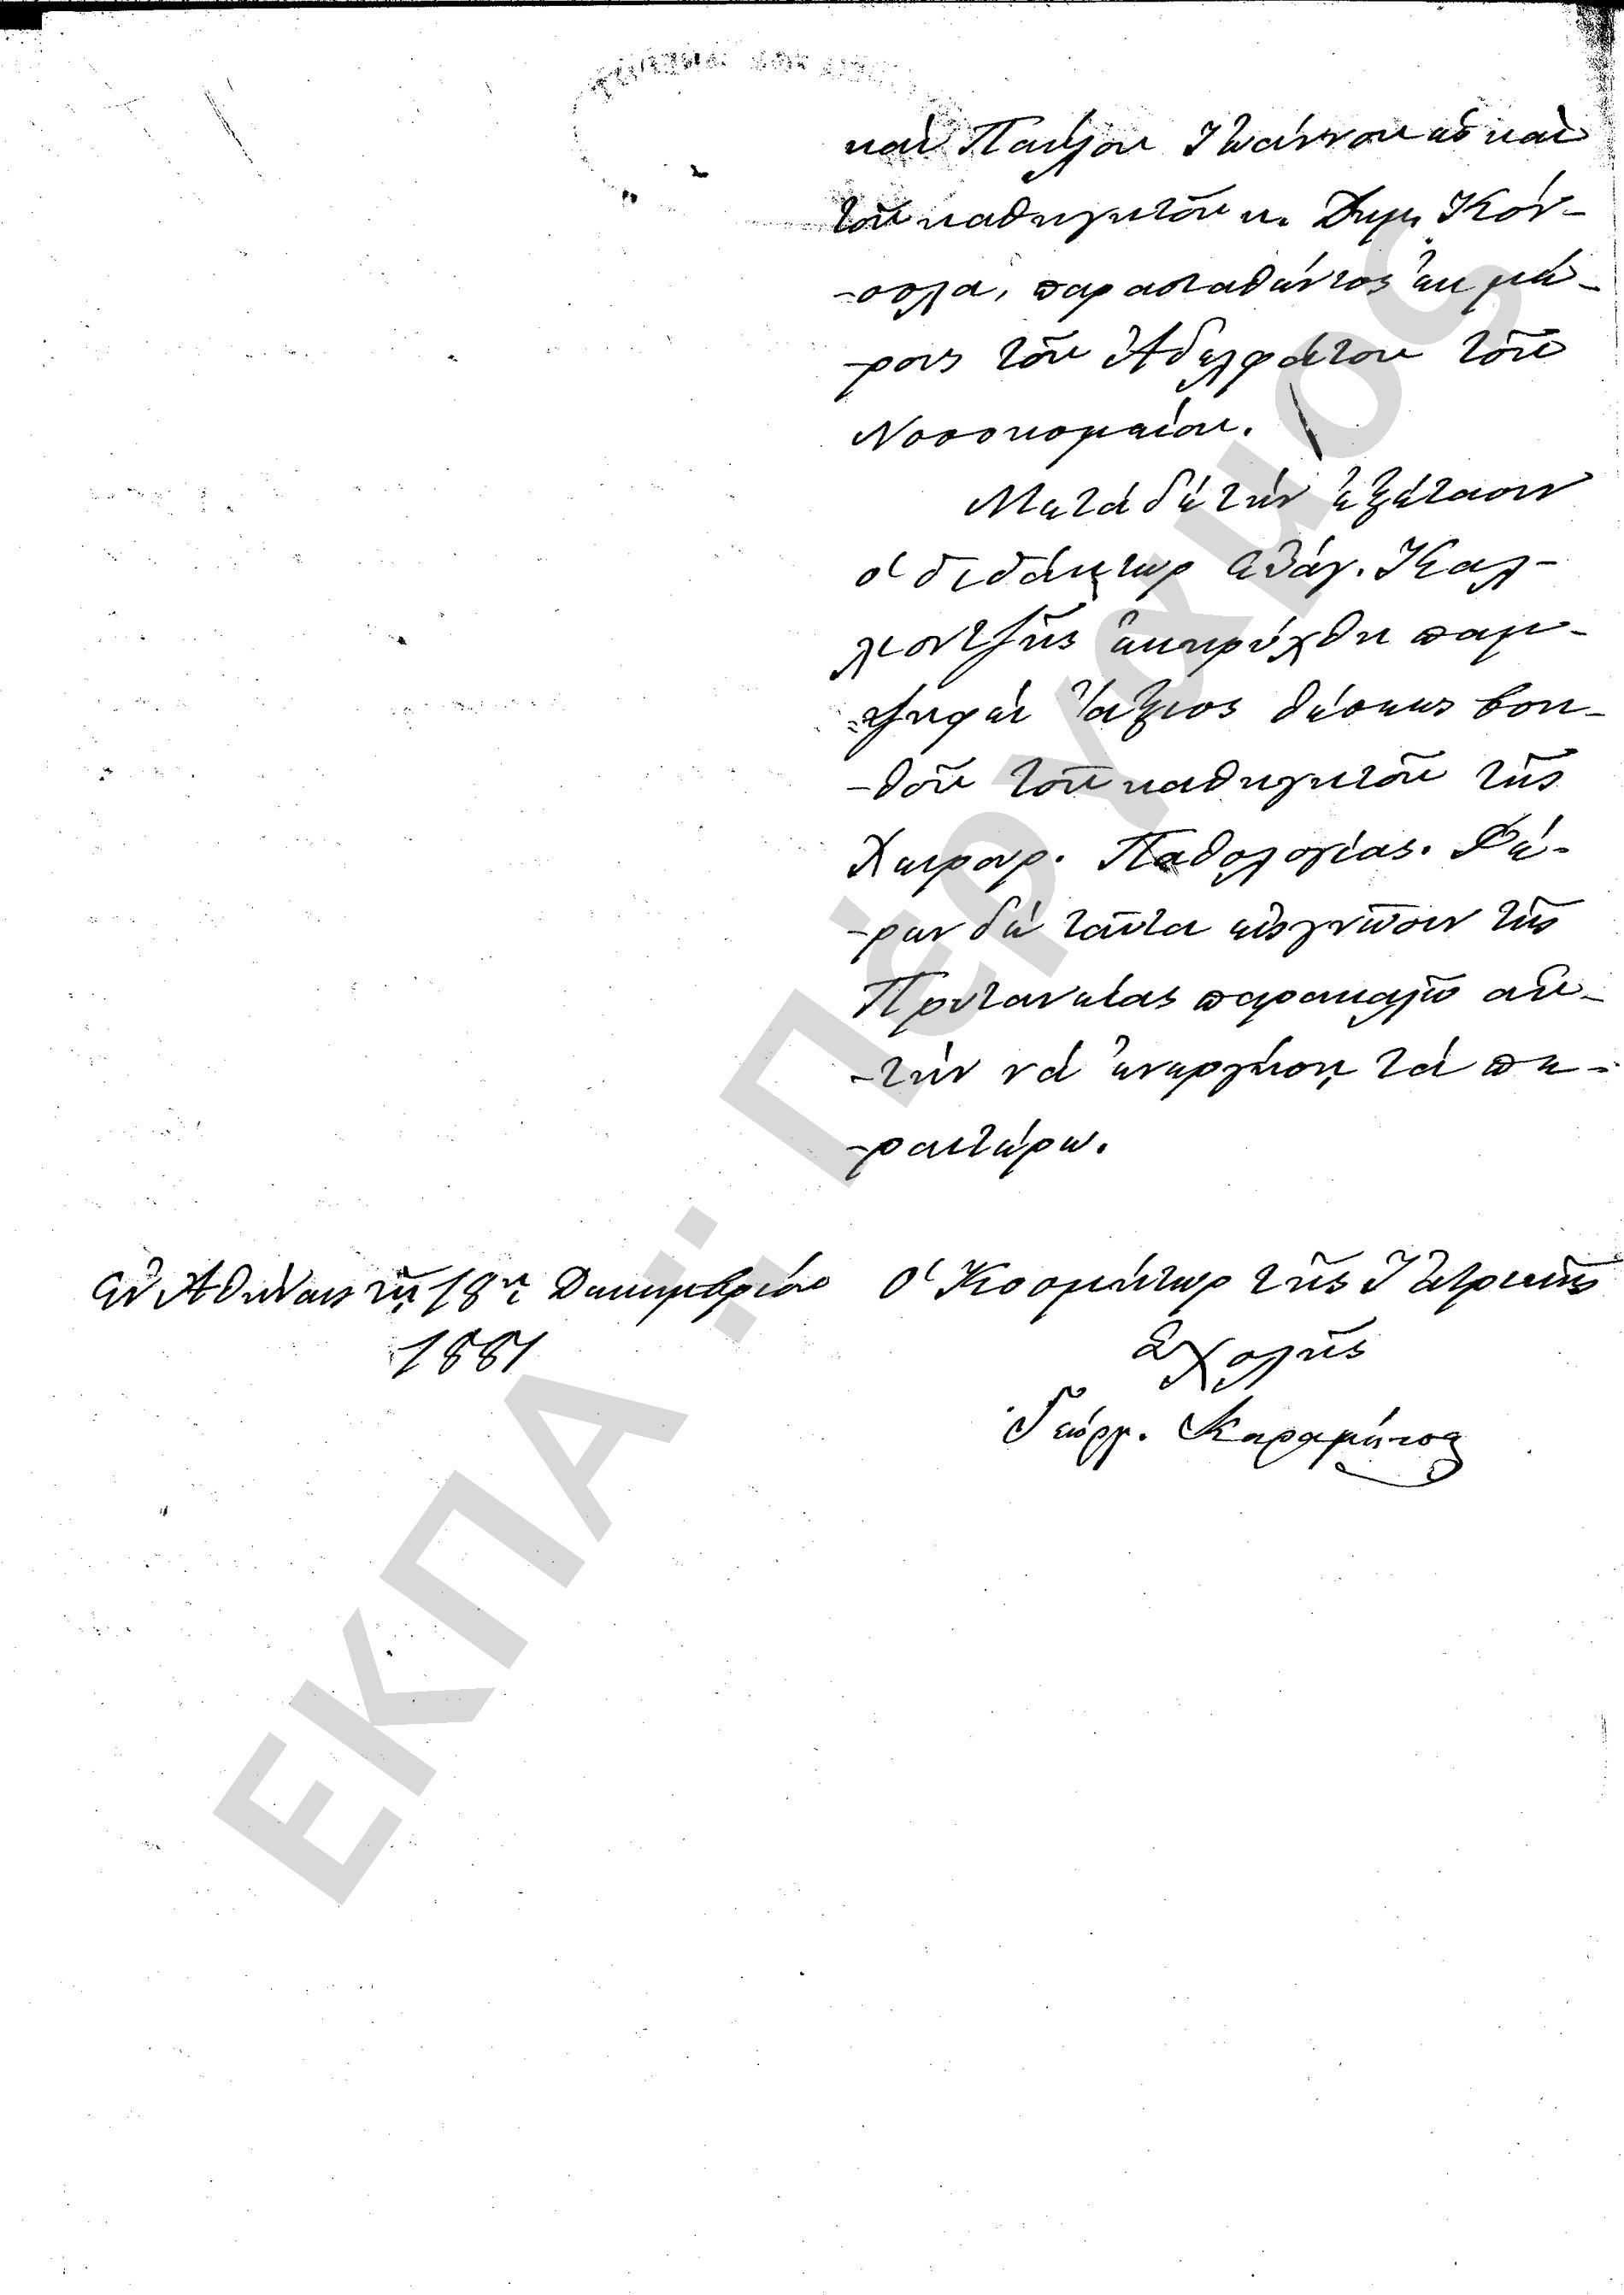 καὶ Παύλου Ἰωάννου ὡς καὶ
τοῦ καθηγητοῦ κ. Δημ. Κόν-
-σολα, παρασταθέντος ἐκ μέ-
-ρους τοῦ Ἀδελφάτου τοῦ
Νοσοκομείου.
Μετὰ δὲ τὴν ἐξέτασιν
ὁ διδάκτωρ Εὐάγ. Καλ-
λιοντζῆς ἐκηρύχθη παμ-
-ψηφεὶ ἄξιος θέσεως βοη-
-θοῦ τοῦ καθηγητοῦ τῆς
Χειρουρ. Παθολογίας. Φέ-
-ρων δὲ ταῦτα εἰς γνῶσιν τῆς
Πρυτανείας παρακαλῶ αὐ-
-τὴν νὰ ἐνεργήσῃ τὰ πε-
-ραιτέρω.
Ἐν Ἀθήναις τῇ 18ῃ Δεκεμβρίου
1881
Ὁ Κοσμήτωρ τῆς Ἰατρικῆς
Σχολῆς
Γεώργ. Καραμήτσας
ΕΚΠΑ :: Πέργαμος